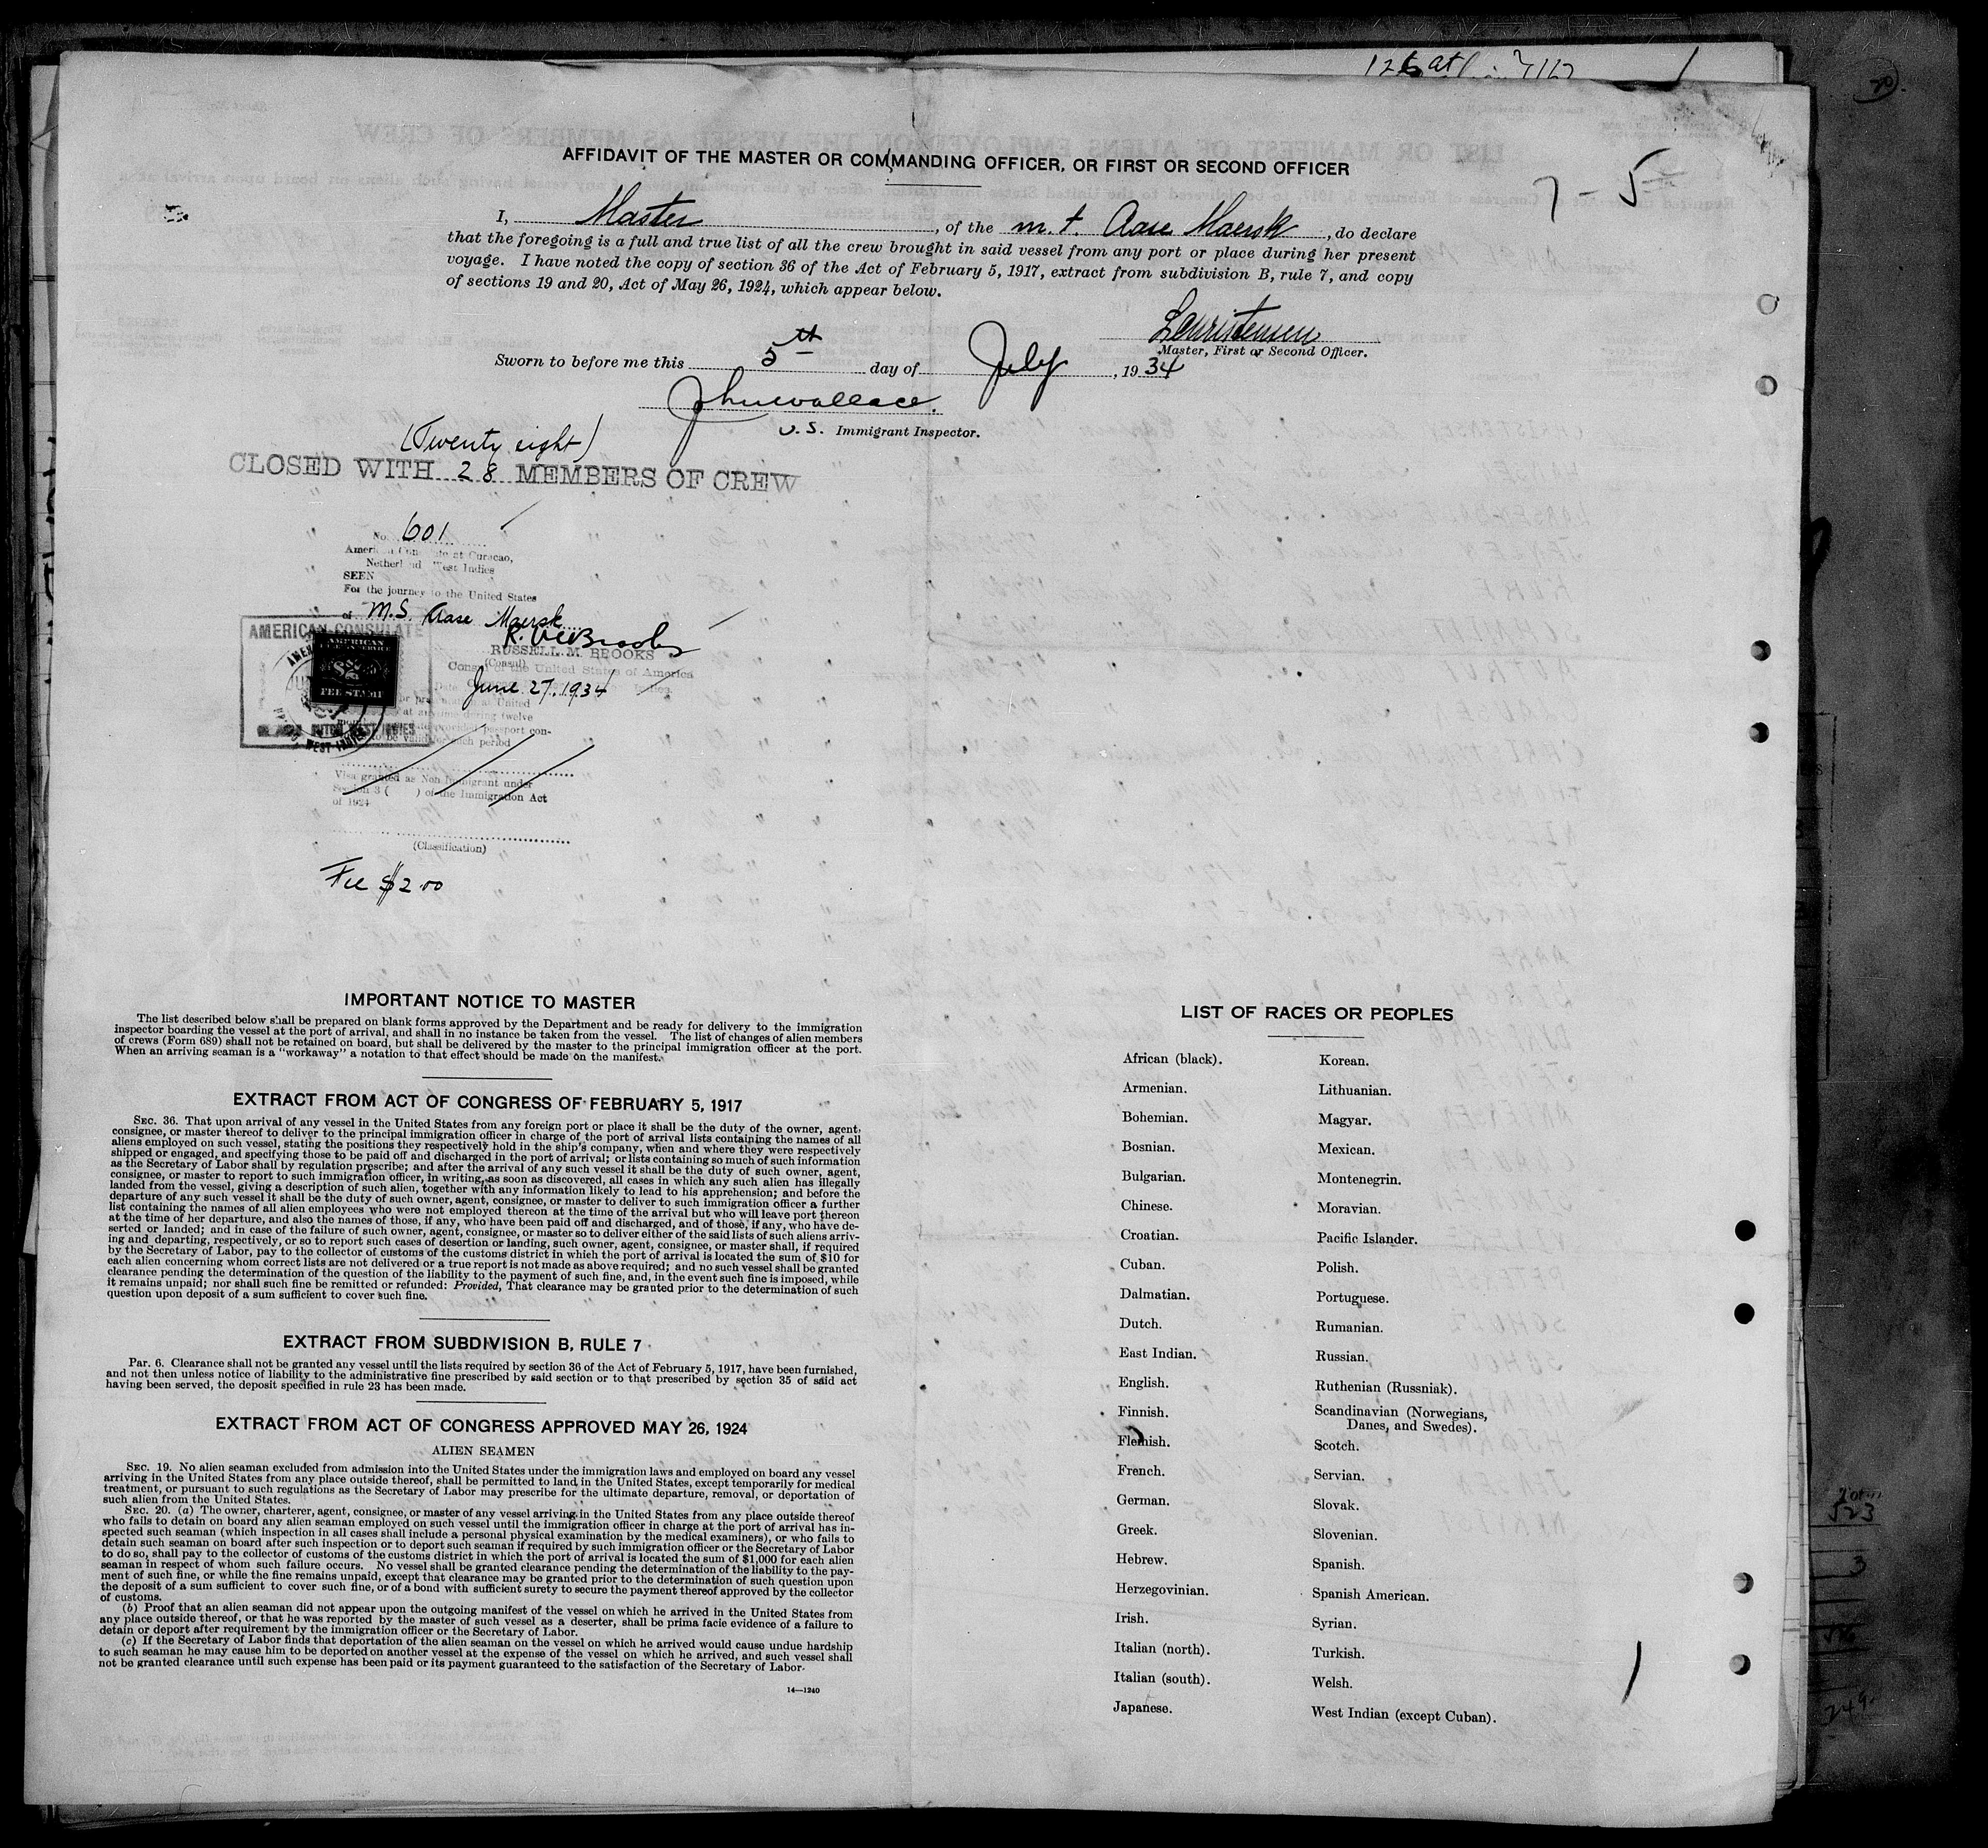 AFFIDAVIT OF THE MASTER OR COMMANDING OFFICER, OR FIRST OR SECOND OFFICER
7 - 5
I, Master, of the m. t. Aase Maersk, do declare
that the foregoing is a full and true list of all the crew brought in said vessel from any port or place during her present
voyage. I have noted the copy of section 36 of the Act of February 5, 1917, extract from subdivision B, rule 7, and copy
of sections 19 and 20, Act of May 26, 1924, which appear below.
LChristensen
Master, First or Second Officer.
Sworn to before me this 5th day of July, 1934
Jhnwallace.
U.S. Immigrant Inspector.
(Twenty eight)
CLOSED WITH 28 MEMBERS OF CREW
No. 601
American Consulate at Curacao,
Netherland West Indies
SEEN
For the journey to the United States
of M.S. Aase Maersk
RUSSELL M. BROOKS
(Consul)
Consul of the United States of America
June 27, 1934
AMERICAN CONSULATE
AMERICAN
FEE STAMP
Visa granted as Non Immigrant under
Section 3 ( ) of the Immigration Act
of 1924
(Classification)
Fee $2.00
IMPORTANT NOTICE TO MASTER
The list described below shall be prepared on blank forms approved by the Department and be ready for delivery to the immigration
inspector boarding the vessel at the port of arrival, and shall in no instance be taken from the vessel. The list of changes of alien members
of crews (Form 689) shall not be retained on board, but shall be delivered by the master to the principal immigration officer at the port.
When an arriving seaman is a "workaway" a notation to that effect should be made on the manifest.
EXTRACT FROM ACT OF CONGRESS OF FEBRUARY 5, 1917
SEC. 36. That upon arrival of any vessel in the United States from any foreign port or place it shall be the duty of the owner, agent,
consignee, or master thereof to deliver to the principal immigration officer in charge of the port of arrival lists containing the names of all
aliens employed on such vessel, stating the positions they respectively hold in the ship's company, when and where they were respectively
shipped or engaged, and specifying those to be paid off and discharged in the port of arrival; or lists containing so much of such information
as the Secretary of Labor shall by regulation prescribe; and after the arrival of any such vessel it shall be the duty of such owner, agent,
consignee, or master to report to such immigration officer, in writing, as soon as discovered, all cases in which any such alien has illegally
landed from the vessel, giving a description of such alien, together with any information likely to lead to his apprehension; and before the
departure of any such vessel it shall be the duty of such owner, agent, consignee, or master to deliver to such immigration officer a further
list containing the names of all alien employees who were not employed thereon at the time of the arrival but who will leave port thereon
at the time of her departure, and also the names of those, if any, who have been paid off and discharged, and of those, if any, who have de-
serted or landed; and in case of the failure of such owner, agent, consignee, or master so to deliver either of the said lists of such aliens arriv-
ing and departing, respectively, or so to report such cases of desertion or landing, such owner, agent, consignee, or master shall, if required
by the Secretary of Labor, pay to the collector of customs of the customs district in which the port of arrival is located the sum of $10 for
each alien concerning whom correct lists are not delivered or a true report is not made as above required; and no such vessel shall be granted
clearance pending the determination of the question of the liability to the payment of such fine, and, in the event such fine is imposed, while
it remains unpaid; nor shall such fine be remitted or refunded: Provided, That clearance may be granted prior to the determination of such
question upon deposit of a sum sufficient to cover such fine.
EXTRACT FROM SUBDIVISION B, RULE 7
Par. 6. Clearance shall not be granted any vessel until the lists required by section 36 of the Act of February 5, 1917, have been furnished,
and not then unless notice of liability to the administrative fine prescribed by said section or to that prescribed by section 35 of said act
having been served, the deposit specified in rule 23 has been made.
EXTRACT FROM ACT OF CONGRESS APPROVED MAY 26, 1924
ALIEN SEAMEN
SEC. 19. No alien seaman excluded from admission into the United States under the immigration laws and employed on board any vessel
arriving in the United States from any place outside thereof, shall be permitted to land in the United States, except temporarily for medical
treatment, or pursuant to such regulations as the Secretary of Labor may prescribe for the ultimate departure, removal, or deportation of
such alien from the United States.
SEC. 20. (a) The owner, charterer, agent, consignee, or master of any vessel arriving in the United States from any place outside thereof
who fails to detain on board any alien seaman employed on such vessel until the immigration officer in charge at the port of arrival has in-
spected such seaman (which inspection in all cases shall include a personal physical examination by the medical examiners), or who fails to
detain such seaman on board after such inspection or to deport such seaman if required by such immigration officer or the Secretary of Labor
to do so, shall pay to the collector of customs of the customs district in which the port of arrival is located the sum of $1,000 for each alien
seaman in respect of whom such failure occurs. No vessel shall be granted clearance pending the determination of the liability to the pay-
ment of such fine, or while the fine remains unpaid, except that clearance may be granted prior to the determination of such question upon
the deposit of a sum sufficient to cover such fine, or of a bond with sufficient surety to secure the payment thereof approved by the collector
of customs.
(b) Proof that an alien seaman did not appear upon the outgoing manifest of the vessel on which he arrived in the United States from
any place outside thereof, or that he was reported by the master of such vessel as a deserter, shall be prima facie evidence of a failure to
detain or deport after requirement by the immigration officer or the Secretary of Labor.
(c) If the Secretary of Labor finds that deportation of the alien seaman on the vessel on which he arrived would cause undue hardship
to such seaman he may cause him to be deported on another vessel at the expense of the vessel on which he arrived, and such vessel shall
not be granted clearance until such expense has been paid or its payment guaranteed to the satisfaction of the Secretary of Labor.
14—1240
LIST OF RACES OR PEOPLES
African (black).
Armenian.
Bohemian.
Bosnian.
Bulgarian.
Chinese.
Croatian.
Cuban.
Dalmatian.
Dutch.
East Indian.
English.
Finnish.
Flemish.
French.
German.
Greek.
Hebrew.
Herzegovinian.
Irish.
Italian (north).
Italian (south).
Japanese.
Korean.
Lithuanian.
Magyar.
Mexican.
Montenegrin.
Moravian.
Pacific Islander.
Polish.
Portuguese.
Rumanian.
Russian.
Ruthenian (Russniak).
Scandinavian (Norwegians,
Danes, and Swedes).
Scotch.
Servian.
Slovak.
Slovenian.
Spanish.
Spanish American.
Syrian.
Turkish.
Welsh.
West Indian (except Cuban).
523
3